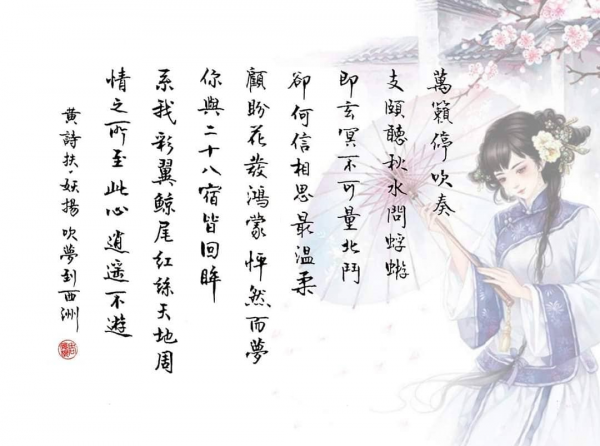 萬籟停吹奏
支頤聽秋水問蜉蝣
即玄冥不可量北鬥
卻何信相思最溫柔
顧盼花發鴻蒙 怦然而夢
你與二十八宿皆回眸
系我彩翼鯨尾紅絲天地周
情之所至此心逍遥不遊
黄詩扶·妖揚 吹夢到西洲